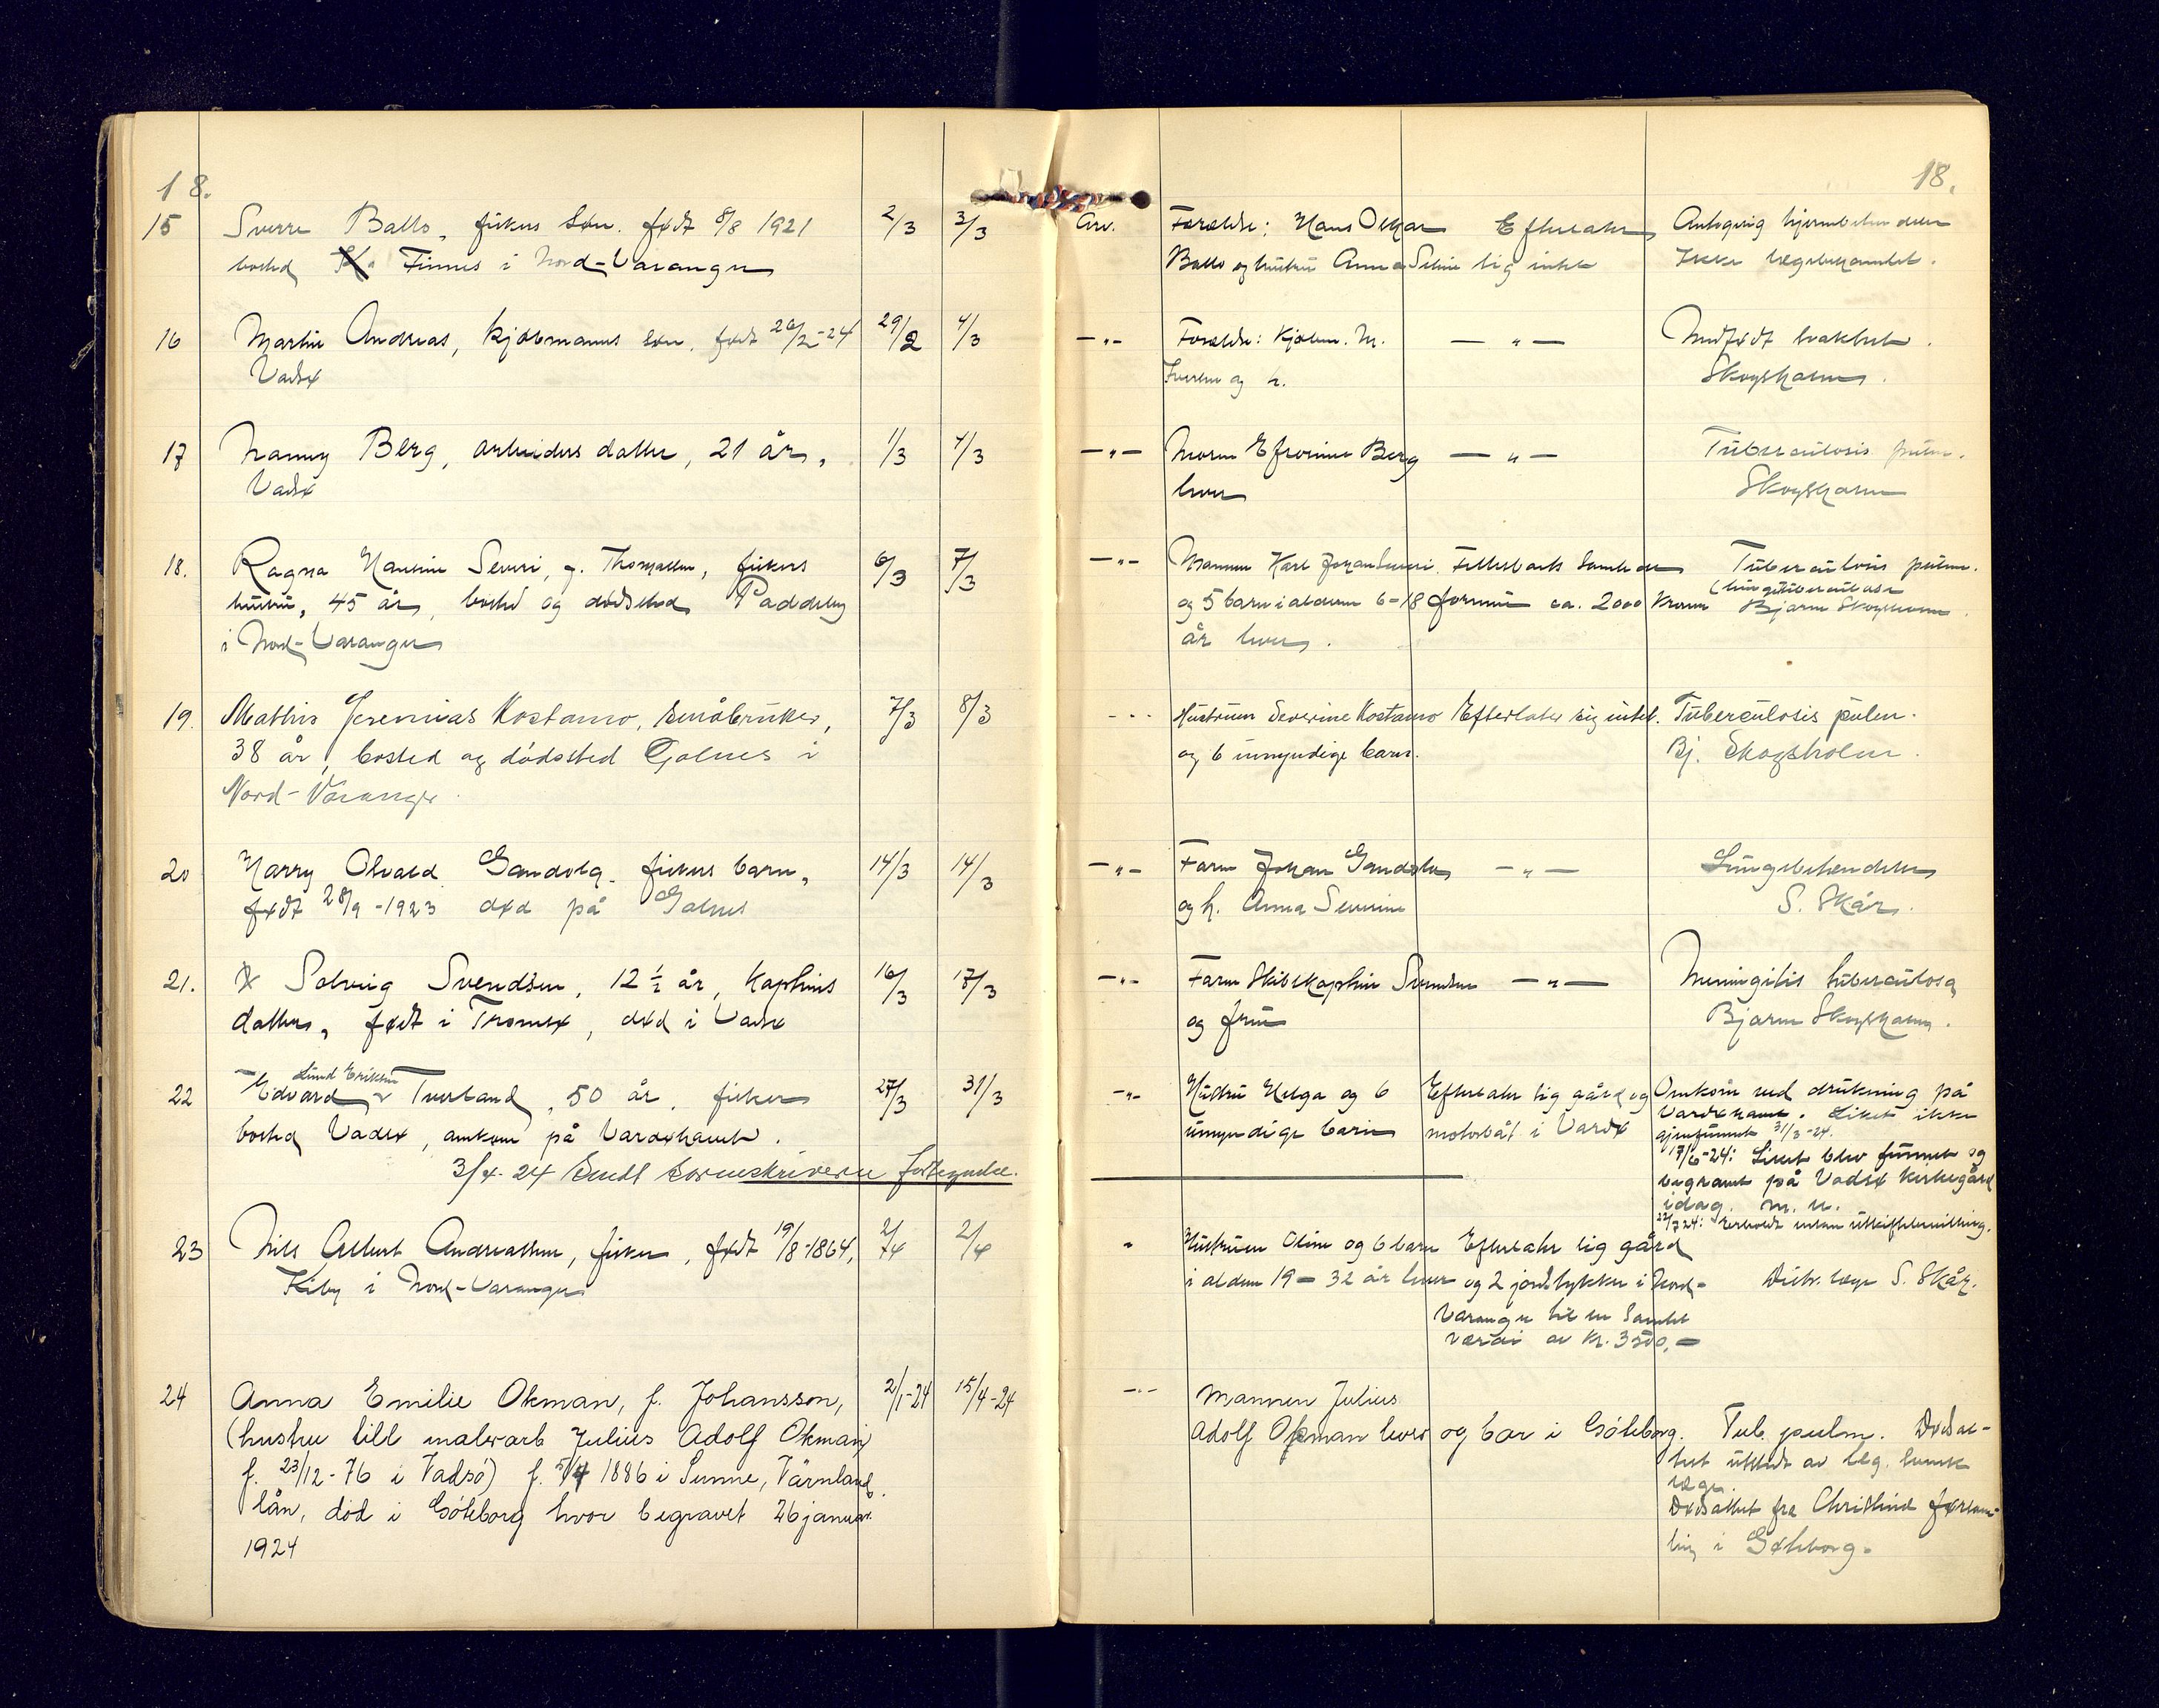 18.
15 Sverre Ballo, fiskers søn. født 8/8 1921 2/3 3/3
bosted Finnes i Nord-Varanger
16 Martin Andreas, kjøbmanns søn, født 26/2-24 29/2 4/3
Vadsø
17 Nanny Berg, arbeiders datter, 21 år, 1/3 4/3
Vadsø
18. Ragna Hansine Severi, f. Thomassen, fiskers 6/3 7/3
hustru, 45 år, bosted og dødssted Paddeby
i Nord-Varanger
19. Mathis Jeremias Kostamo, småbruker, 7/3 8/3
38 år, bosted og dødssted Golnes i
Nord-Varanger.
20 Harry Olvald Gandola. fiskers barn, 14/3 14/3
født 28/9-1923 død på Golnes
21. Solveig Svendsen, 12 1/2 år, kapteins 16/3 17/3
datter, født i Tromsø, død i Vadsø
Lund Eriksen
22 Edvard Tverland, 50 år, fisker 27/3 31/3
bosted Vadsø, omkom på Vardøhavet.
3/4-24 Sendt sorenskriveren fortegnelse.
23 Nils Albert Andreassen, fisker, født 19/8-1864, 2/4 2/4
Kiby i Nord-Varanger
24 Anna Emilie Okman, f. Johansson, 2/1-24 15/4-24
(hustru till malerarb Julius Adolf Okman
f. 23/12-76 i Vadsö) f. 1886 i Sunne, Värmland
län, död i Göteborg hvor begravet 26 januar
1924
18.
Arv. Forældre: Hans Oskar Efterlater Antagelig hjernebetændelse
Ballo og hustru Anna Seline sig intet Ikke lægebehandlet.
—"— Forældre: Kjøbm. M. —"— Medfødt svakhet.
Iversen og h. Skogsholm.
—"— Moren Efrosine Berg —"— Tuberculosis pulm.
lever Skogsholm
—"— Mannen Karl Johan Severi. Fellesboets samlede Tuberculosis pulm.
(lungetuberculose
og 5 barn i alderen 6-18 formue ca. 2000 kroner Bjarne Skogsholm.
år lever.
-"- Hustruen Severine Kostamo Efterlater sig intet. Tuberculosis pulm.
og 6 umyndige barn. Bj. Skogsholm.
—"— Faren Johan Gandola —"— Lungebetendelse
og h. Anna Severine S. Skår.
—"— Faren Skibskaptein Svendsen —"— Meningitis tuberculosa
og frue Bjarne Skogsholm.
—"— Hustru Helga og 6 Efterlater sig gård og Omkom ved drukning på
umyndige barn motorbåt i Vardø Vardøhavet. Liket ikke
gjenfunnet 31/3-24.
17/6-24: Liket blev funnet og
begravet på Vadsø kirkegård
idag. M. N.
" Hustruen Oline og 6 barn Efterlater sig gård
i alderen 19-32 år lever og 2 jordstykker i Nord- Distr. læge S. Skår.
Varanger til en samlet
værdi av kr. 3500,-
—"— Mannen Julius
Adolf Okman lever og bor i Göteborg. Tub. pulm. Dødsat-
test utstedt av leg. svensk
læge.
Dødsattest fra Christine forsam-
ling i Gøteborg.